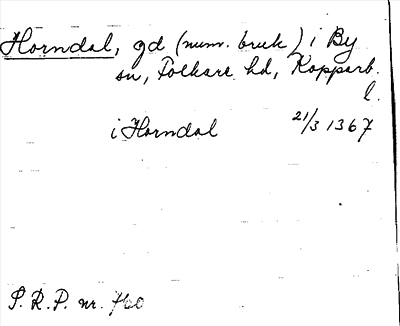 Horndal, gd (num. bruk) i By
sn, Folkare hd, Kopparb.
l.
i Horndal 21/3 1367
S. R. P. nr. 760